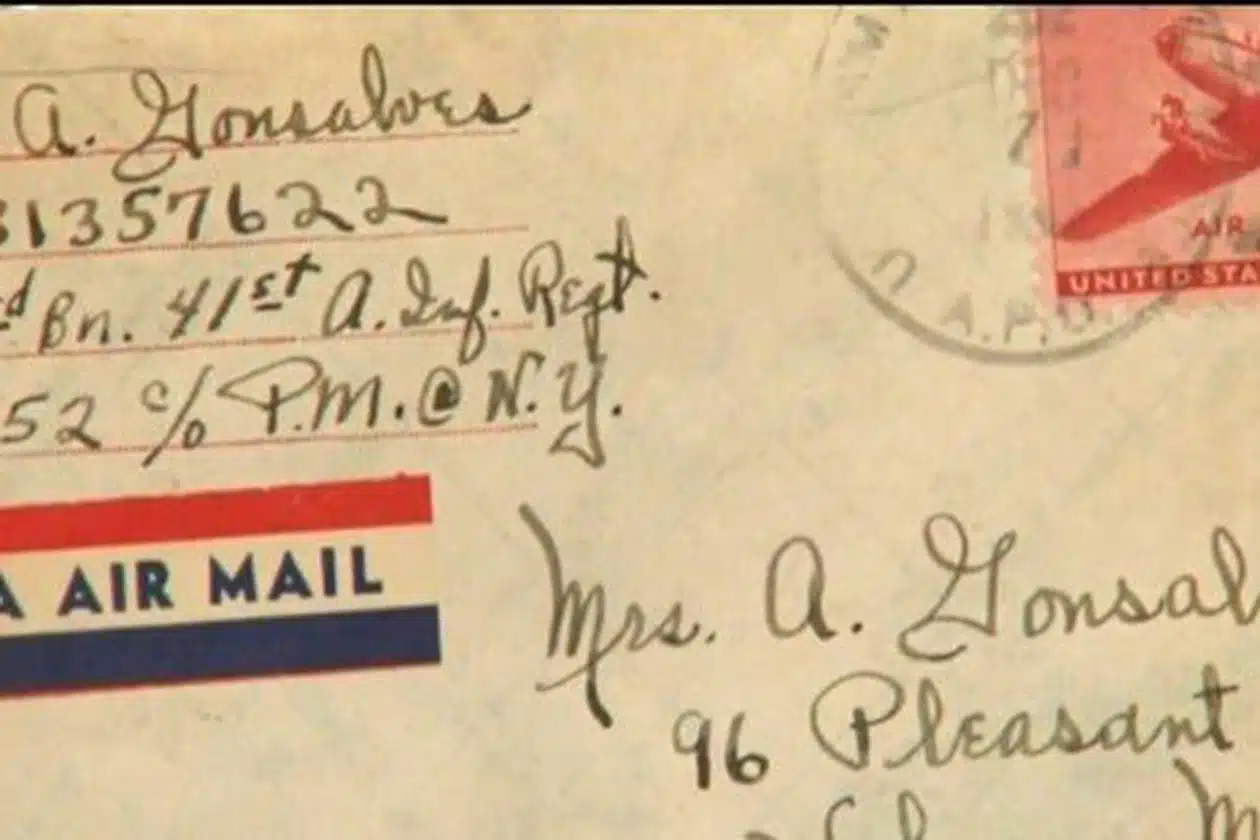 A. Gonsalves
31357622
d Bn. 41st A. Inf. Regt.
52 c/o P.M. @ N.Y.
A AIR MAIL
A.P.O.
AIR
UNITED STA
Mrs. A. Gonsal
96 Pleasant